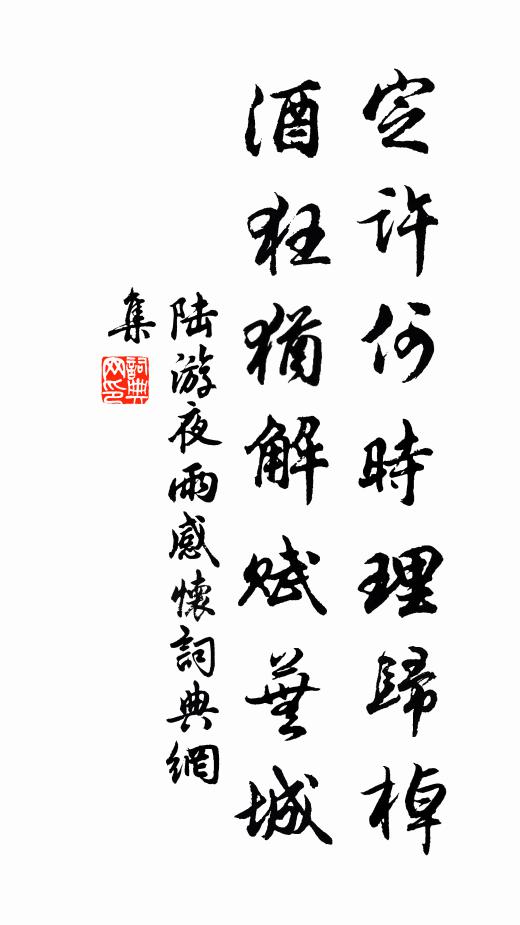 定許何時理歸棹
酒狂猶解賦蕪城
陸游夜雨感懷詞典網
集
詞典網印